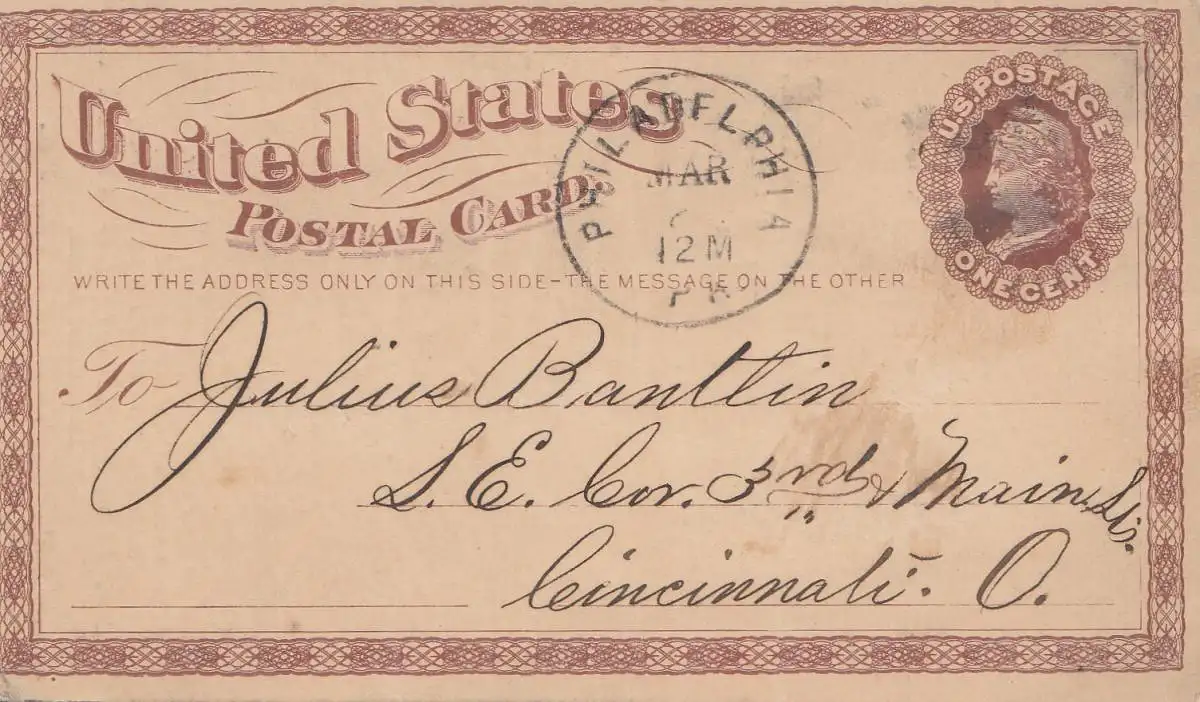 United States
POSTAL CARD.
U.S. POSTAGE
ONE CENT
PHILADELPHIA
MAR
12 M
PA
WRITE THE ADDRESS ONLY ON THIS SIDE - THE MESSAGE ON THE OTHER
To Julius Bantlin
S. E. Cor. 3rd & Main Sts.
Cincinnati. O.